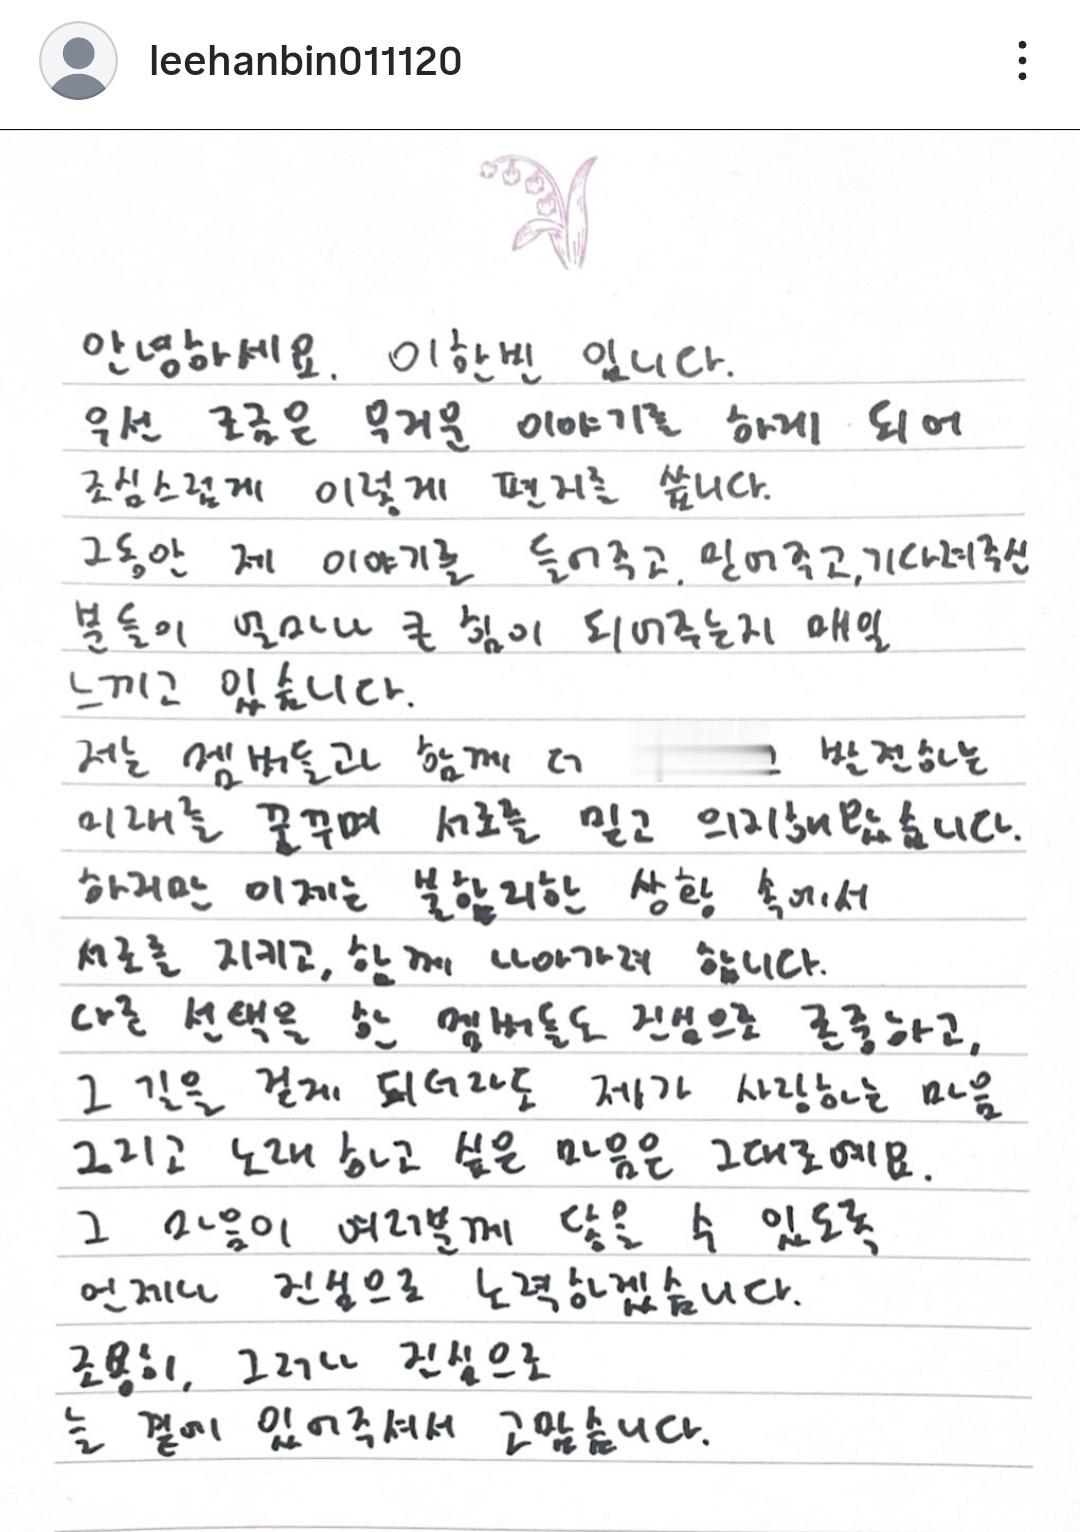 leehanbin011120
안녕하세요. 이한빈 입니다.
우선 조금은 무거운 이야기를 하게 되어
조심스럽게 이렇게 편지를 씁니다.
그동안 제 이야기를 들어주고, 믿어주고, 기다려주신
분들이 얼마나 큰 힘이 되어주는지 매일
느끼고 있습니다.
저는 멤버들과 함께 더 발전하는
미래를 꿈꾸며 서로를 믿고 의지해왔습니다.
하지만 이제는 불합리한 상황 속에서
서로를 지키고, 함께 나아가려 합니다.
다른 선택을 한 멤버들도 진심으로 존중하고,
그 길을 걷게 되더라도 제가 사랑하는 마음
그리고 노래하고 싶은 마음은 그대로예요.
그 마음이 여러분께 닿을 수 있도록
언제나 진심으로 노력하겠습니다.
조용히, 그러나 진심으로
늘 곁에 있어주셔서 고맙습니다.